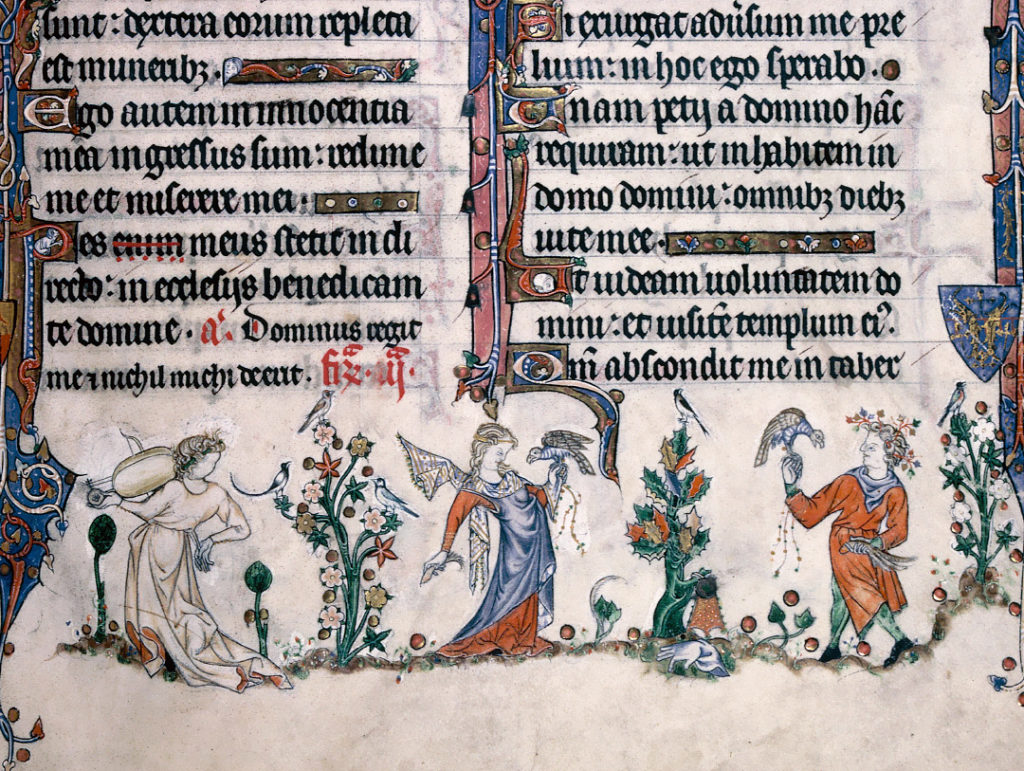 sunt: dextera eorum repleta
est muneribꝫ.
Ego autem in innocentia
mea ingressus sum: redime
me et miserere mei.
Pes enim meus stetit in di
recto: in ecclesijs benedicam
te domine. a᷒. Dominus regit
me ⁊ nichil michi deerit.
Si exurgat adūsum me pre
lium: in hoc ego sperabo.
Unam petij a domino hāc
requiram: ut inhabitem in
domo domini: omnibꝫ diebꝫ
uite mee.
Ut uideam uoluntatem do
mini: et uisitē templum eiꝰ.
Qm̄ abscondit me in taber